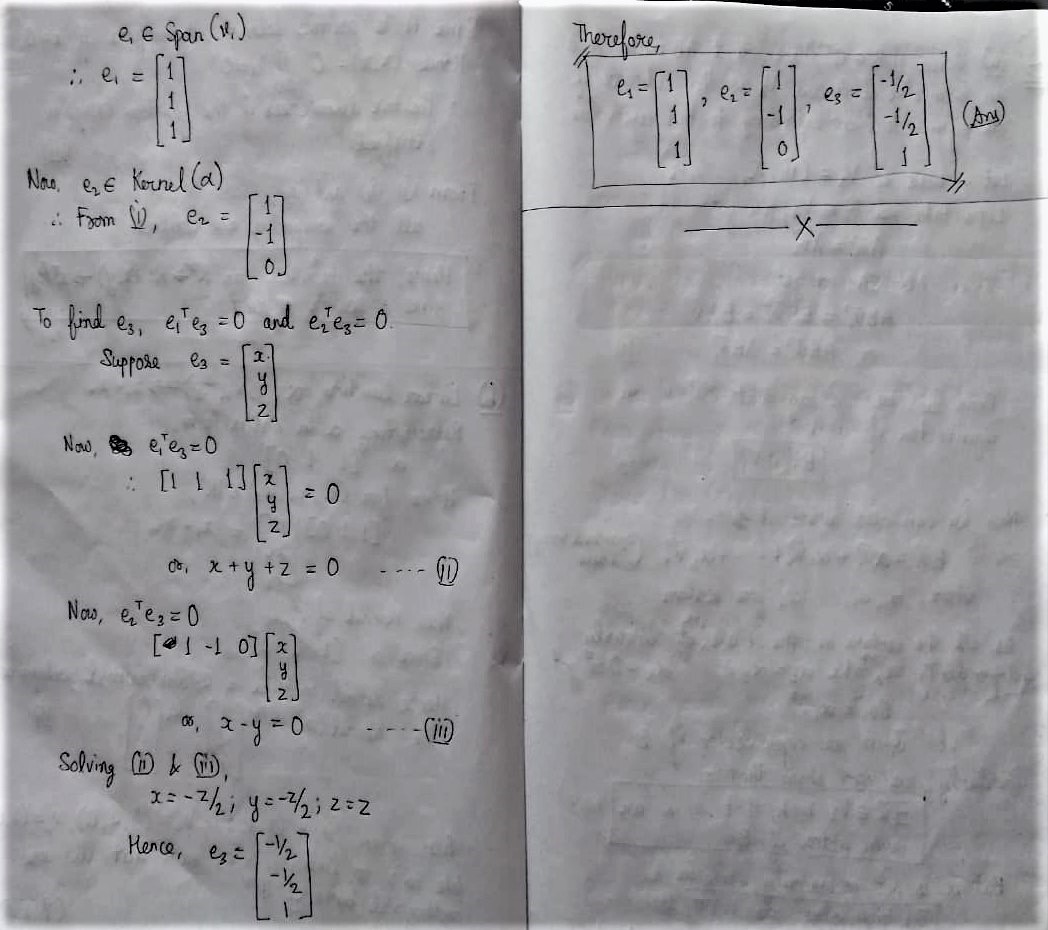 e₁ ∈ Span(v₁)
∴ e₁ = [1 1 1]
Now, e₂ ∈ Kernel(α)
∴ From (i), e₂ = [1 -1 0]
To find e₃, e₁ᵀe₃ = 0 and e₂ᵀe₃ = 0.
Suppose e₃ = [x y z]
Now, e₁ᵀe₃ = 0
∴ [1 1 1] [x y z] = 0
or, x + y + z = 0 ---- (ii)
Now, e₂ᵀe₃ = 0
[1 -1 0] [x y z]
or, x - y = 0 ----- (iii)
Solving (ii) & (iii),
x = -z/2; y = -z/2; z = z
Hence, e₃ = [-1/2 -1/2 1]
Therefore,
e₁ = [1 1 1], e₂ = [1 -1 0], e₃ = [-1/2 -1/2 1] (Ans)
X